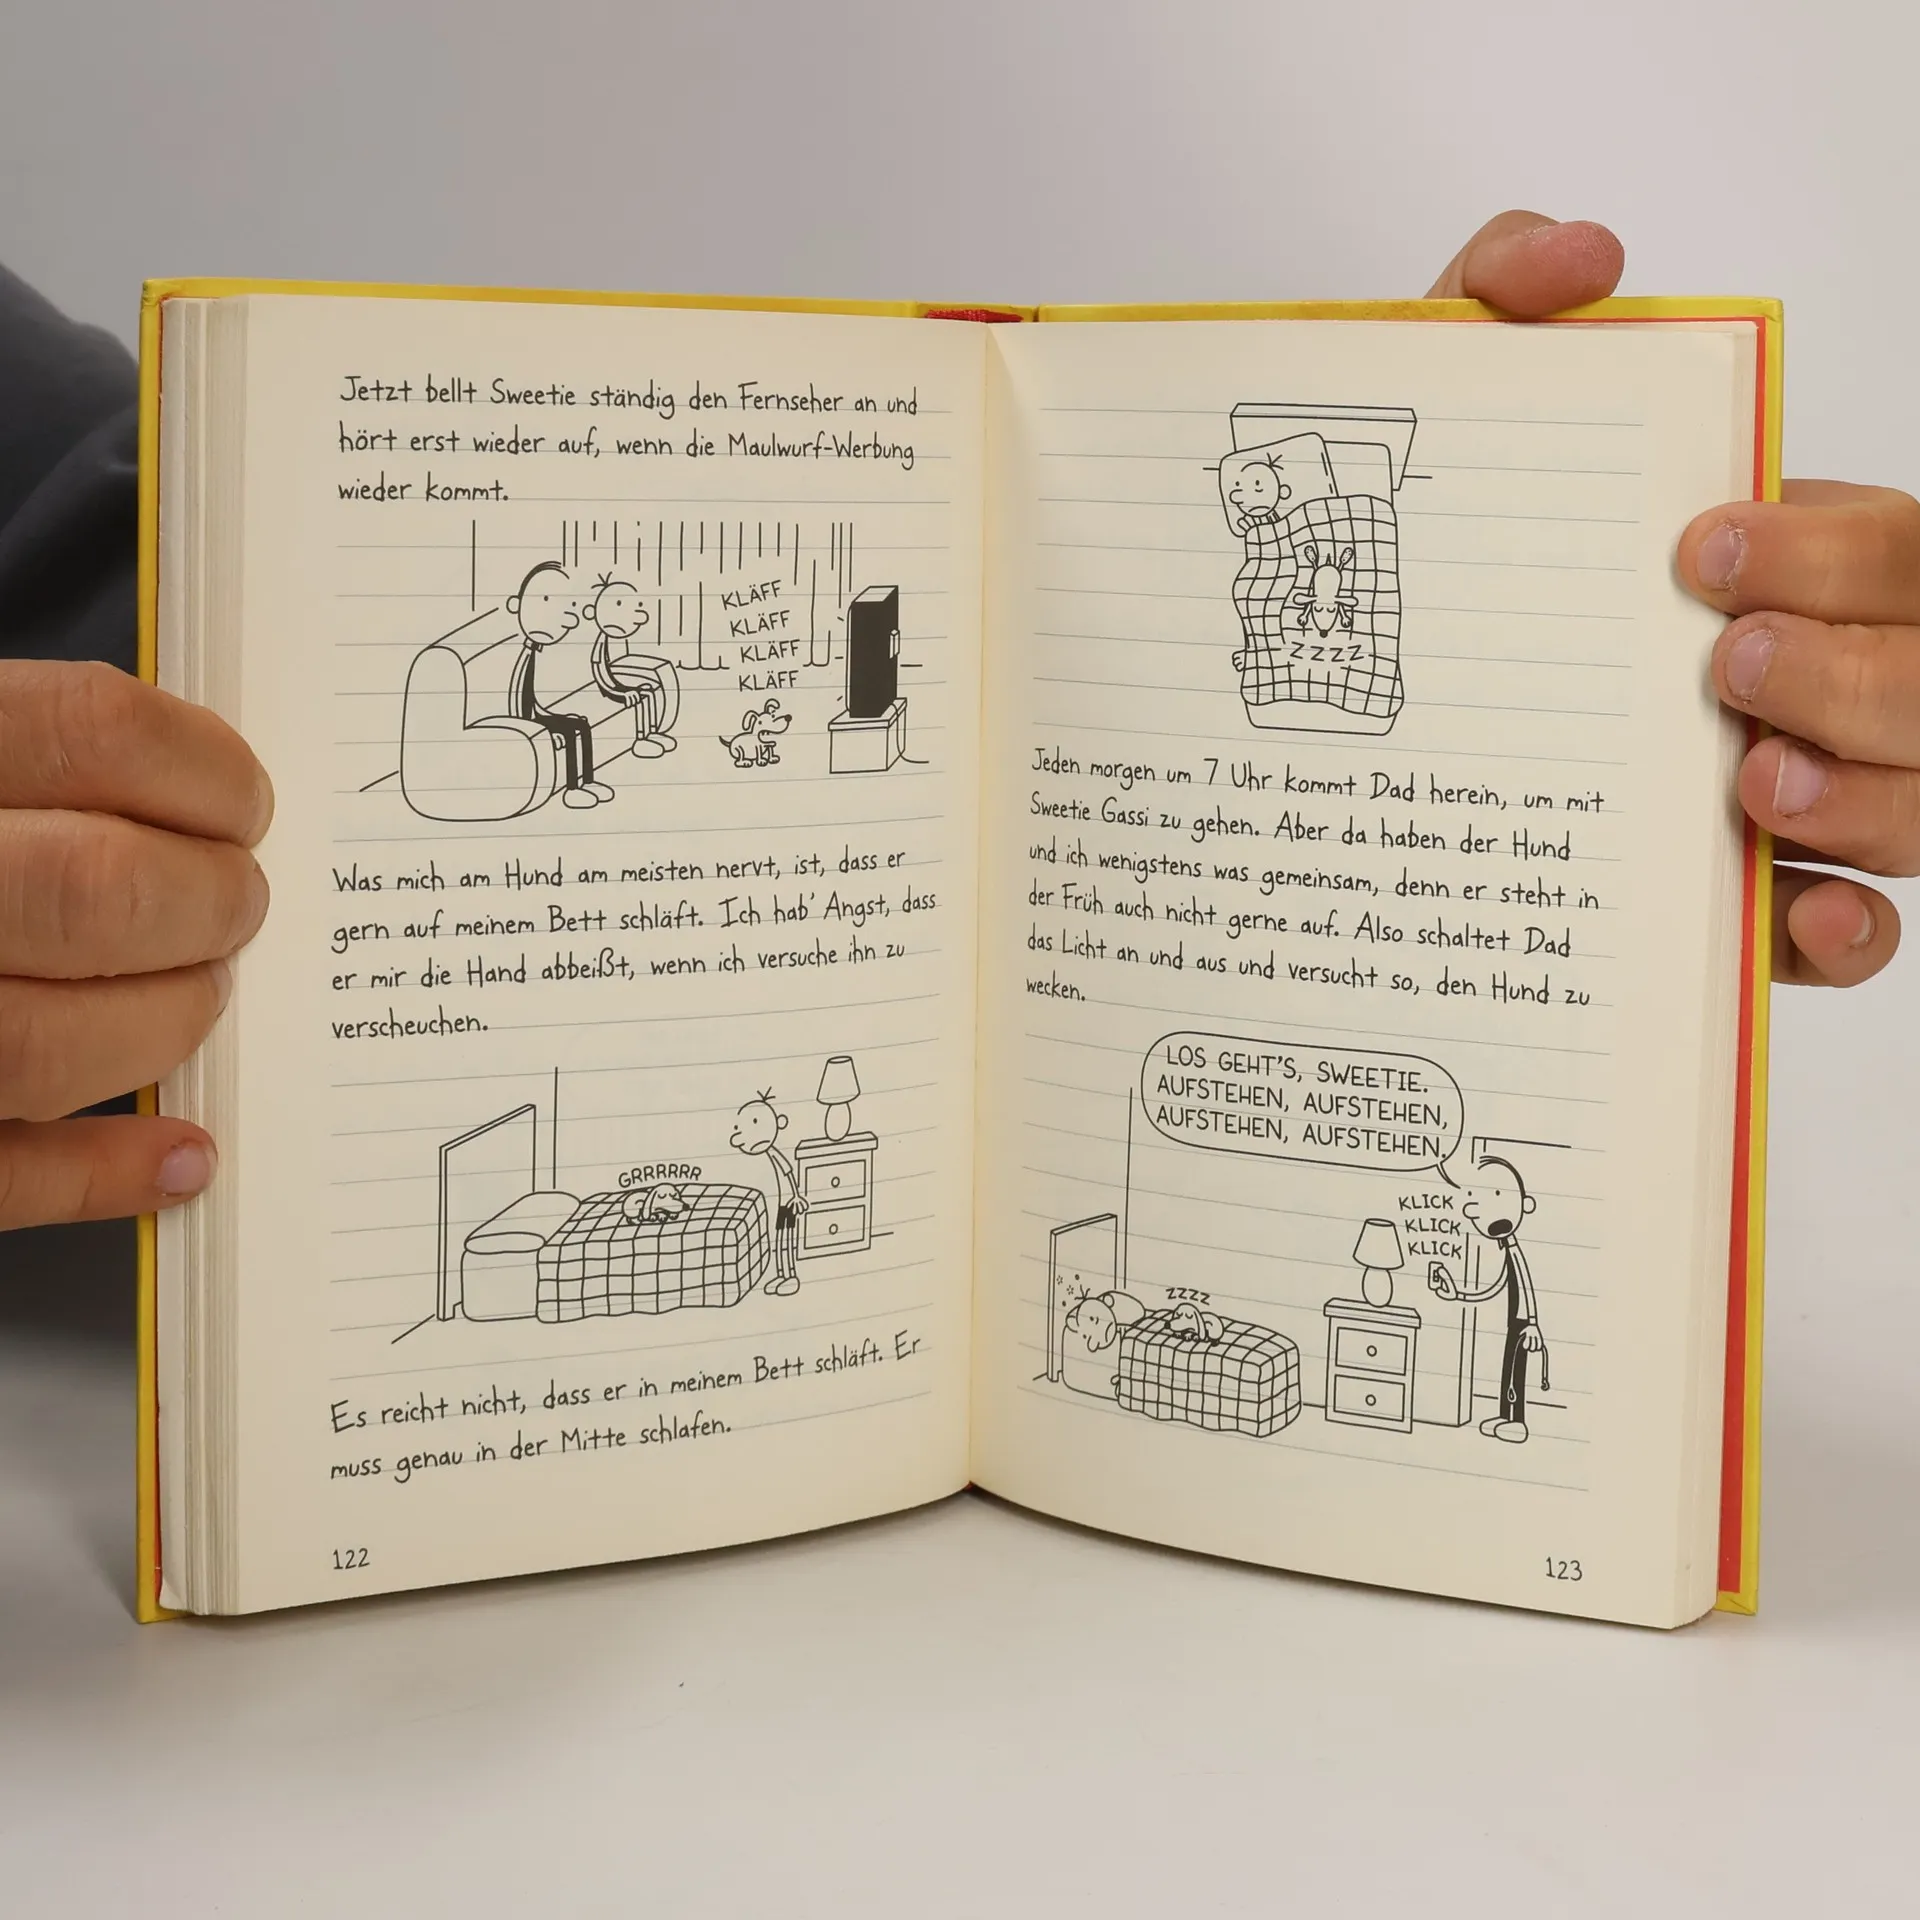 Jetzt bellt Sweetie ständig den Fernseher an und
hört erst wieder auf, wenn die Maulwurf-Werbung
wieder kommt.
KLÄFF
KLÄFF
KLÄFF
KLÄFF
Was mich am Hund am meisten nervt, ist, dass er
gern auf meinem Bett schläft. Ich hab' Angst, dass
er mir die Hand abbeißt, wenn ich versuche ihn zu
verscheuchen.
GRRRRRR
Es reicht nicht, dass er in meinem Bett schläft. Er
muss genau in der Mitte schlafen.
122
ZZZZ
Jeden morgen um 7 Uhr kommt Dad herein, um mit
Sweetie Gassi zu gehen. Aber da haben der Hund
und ich wenigstens was gemeinsam, denn er steht in
der Früh auch nicht gerne auf. Also schaltet Dad
das Licht an und aus und versucht so, den Hund zu
wecken.
LOS GEHT'S, SWEETIE.
AUFSTEHEN, AUFSTEHEN,
AUFSTEHEN, AUFSTEHEN.
KLICK
KLICK
KLICK
ZZZZ
123